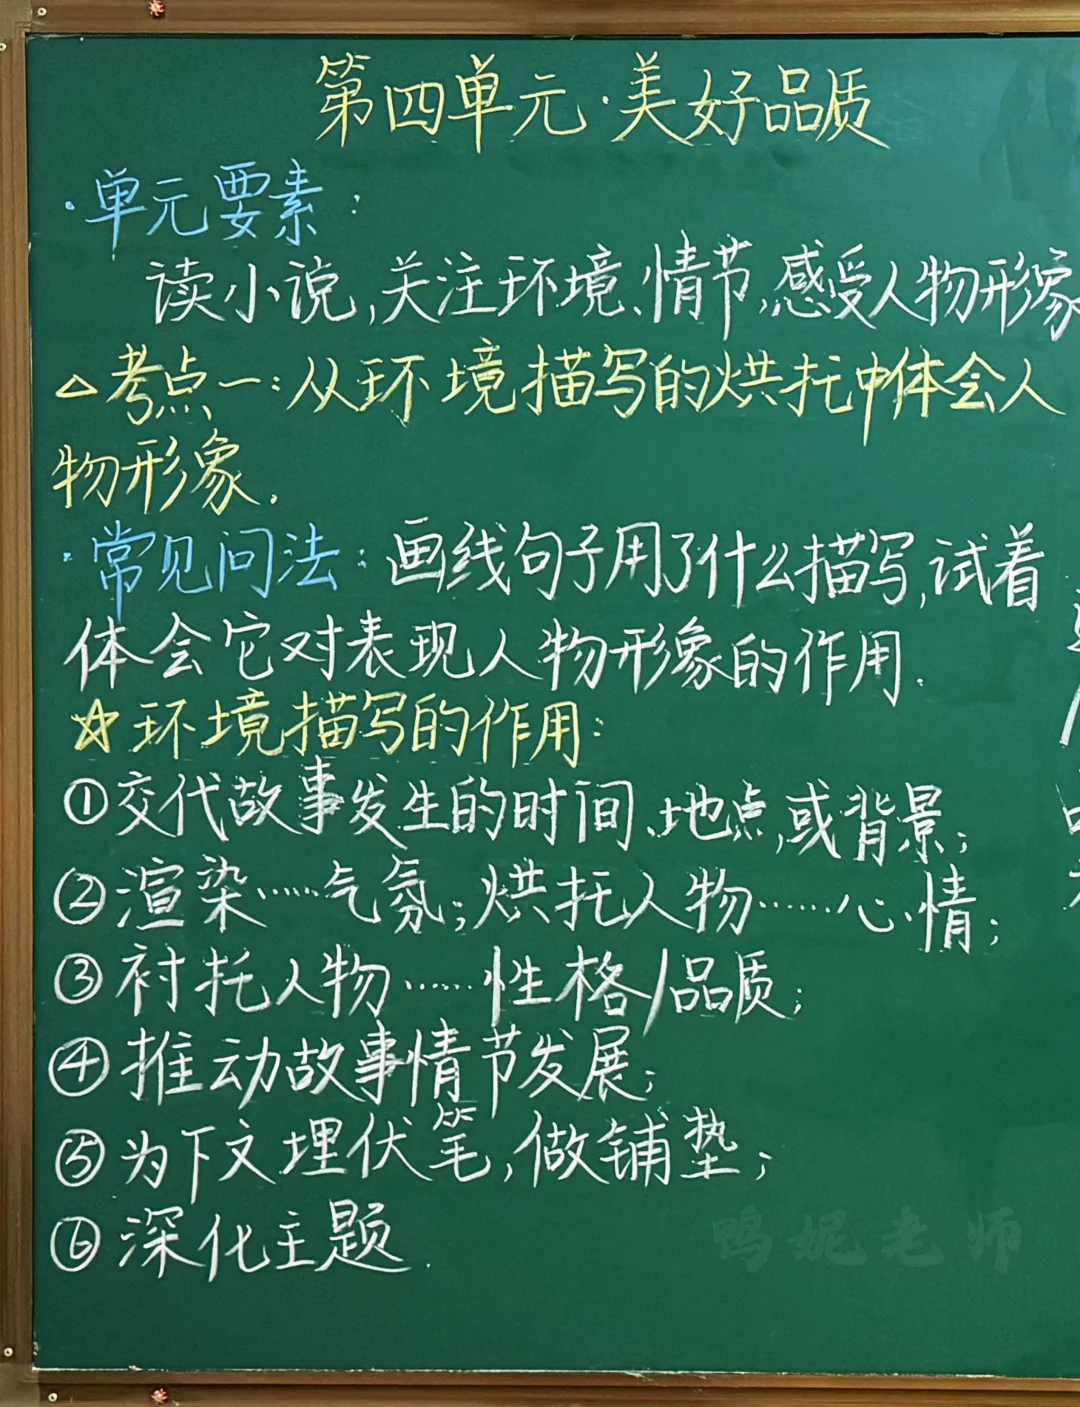 第四单元·美好品质
·单元要素:
读小说,关注环境、情节,感受人物形象
△考点一:从环境描写的烘托中体会人
物形象.
·常见问法:画线句子用了什么描写,试着
体会它对表现人物形象的作用.
☆环境描写的作用:
①交代故事发生的时间、地点,或背景;
②渲染……气氛;烘托人物……心情;
③衬托人物……性格/品质;
④推动故事情节发展;
⑤为下文埋伏笔,做铺垫;
⑥深化主题.
鸭妮老师